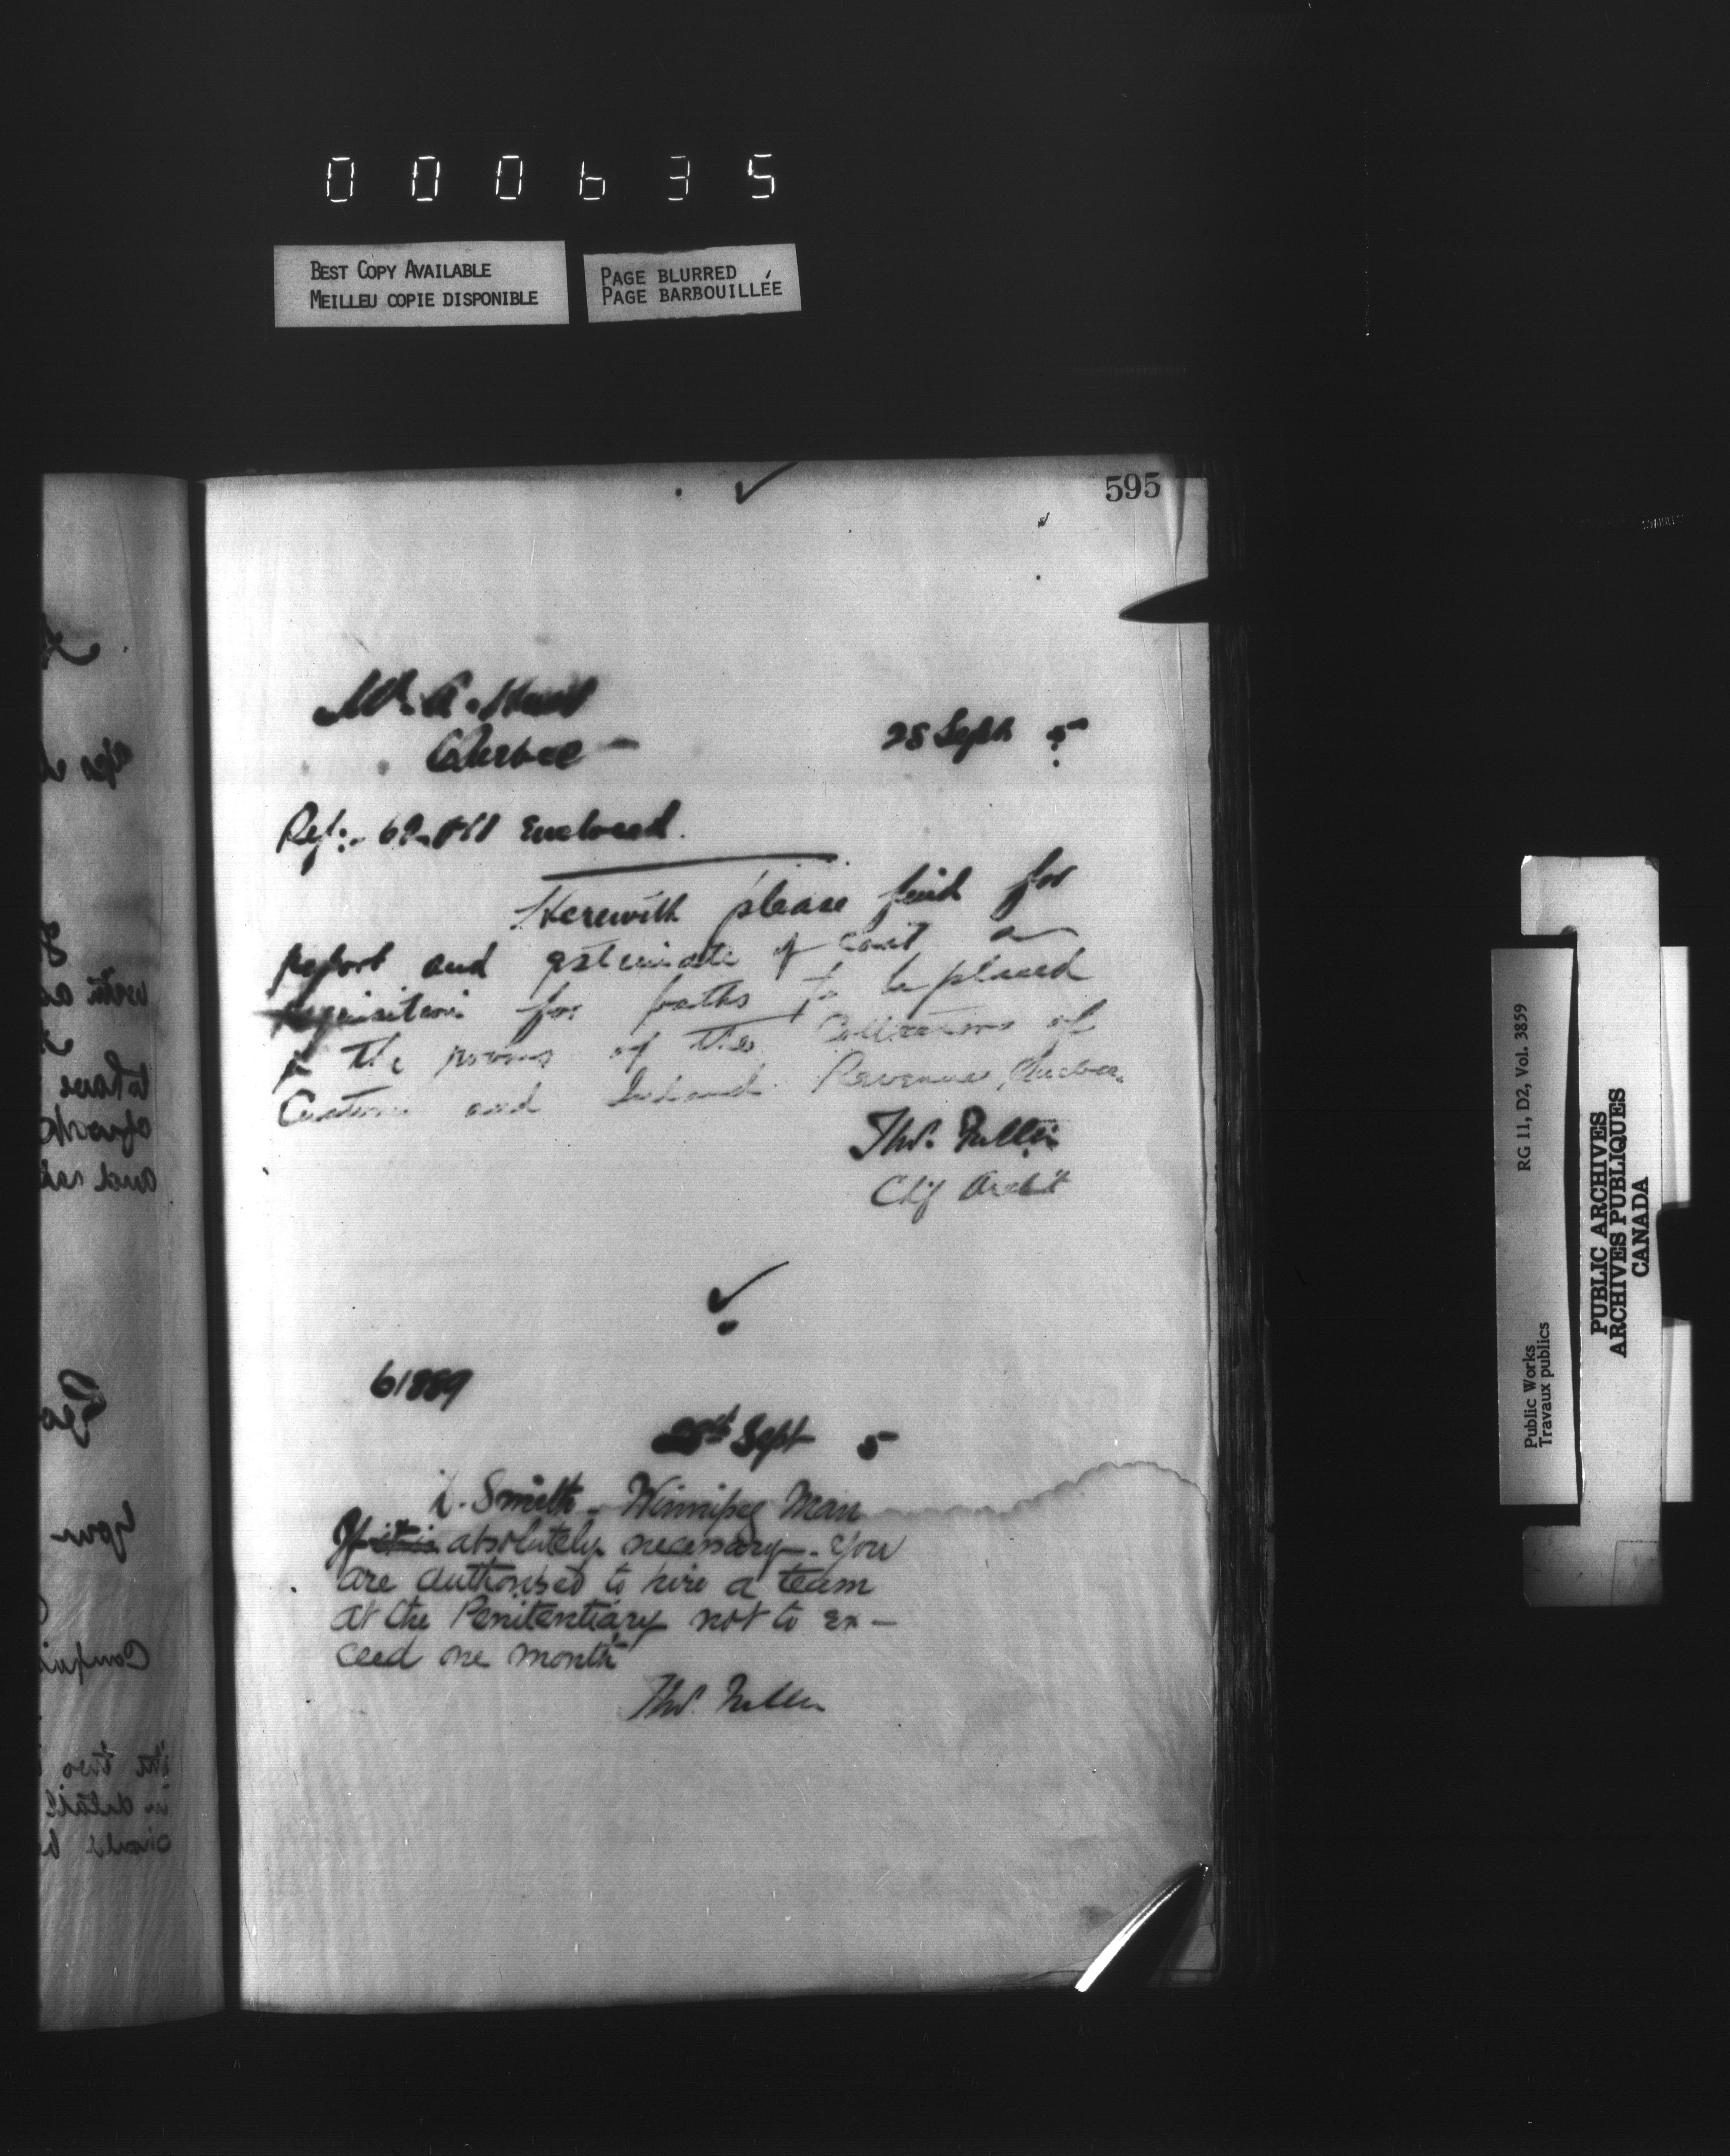 000635
BEST COPY AVAILABLE
MEILLEU COPIE DISPONIBLE
PAGE BLURRED
PAGE BARBOUILLÉE
595
Mr. A.
Quebec
28 Sept 5
Ref: Enclosed.
Herewith please find for
report and estimate of cost a
requisition for baths to be placed
in the rooms of the Collectors of
Customs and Inland Revenue, Quebec.
Thos. Fuller
Chf Archt
61889
28th Sept 5
D. Smith - Winnipeg Man
If it is absolutely necessary. You
are authorised to hire a team
at the Penitentiary not to ex-
ceed one month
Thos. Fuller
Public Works
Travaux publics
RG 11, D2, Vol. 3859
PUBLIC ARCHIVES
ARCHIVES PUBLIQUES
CANADA